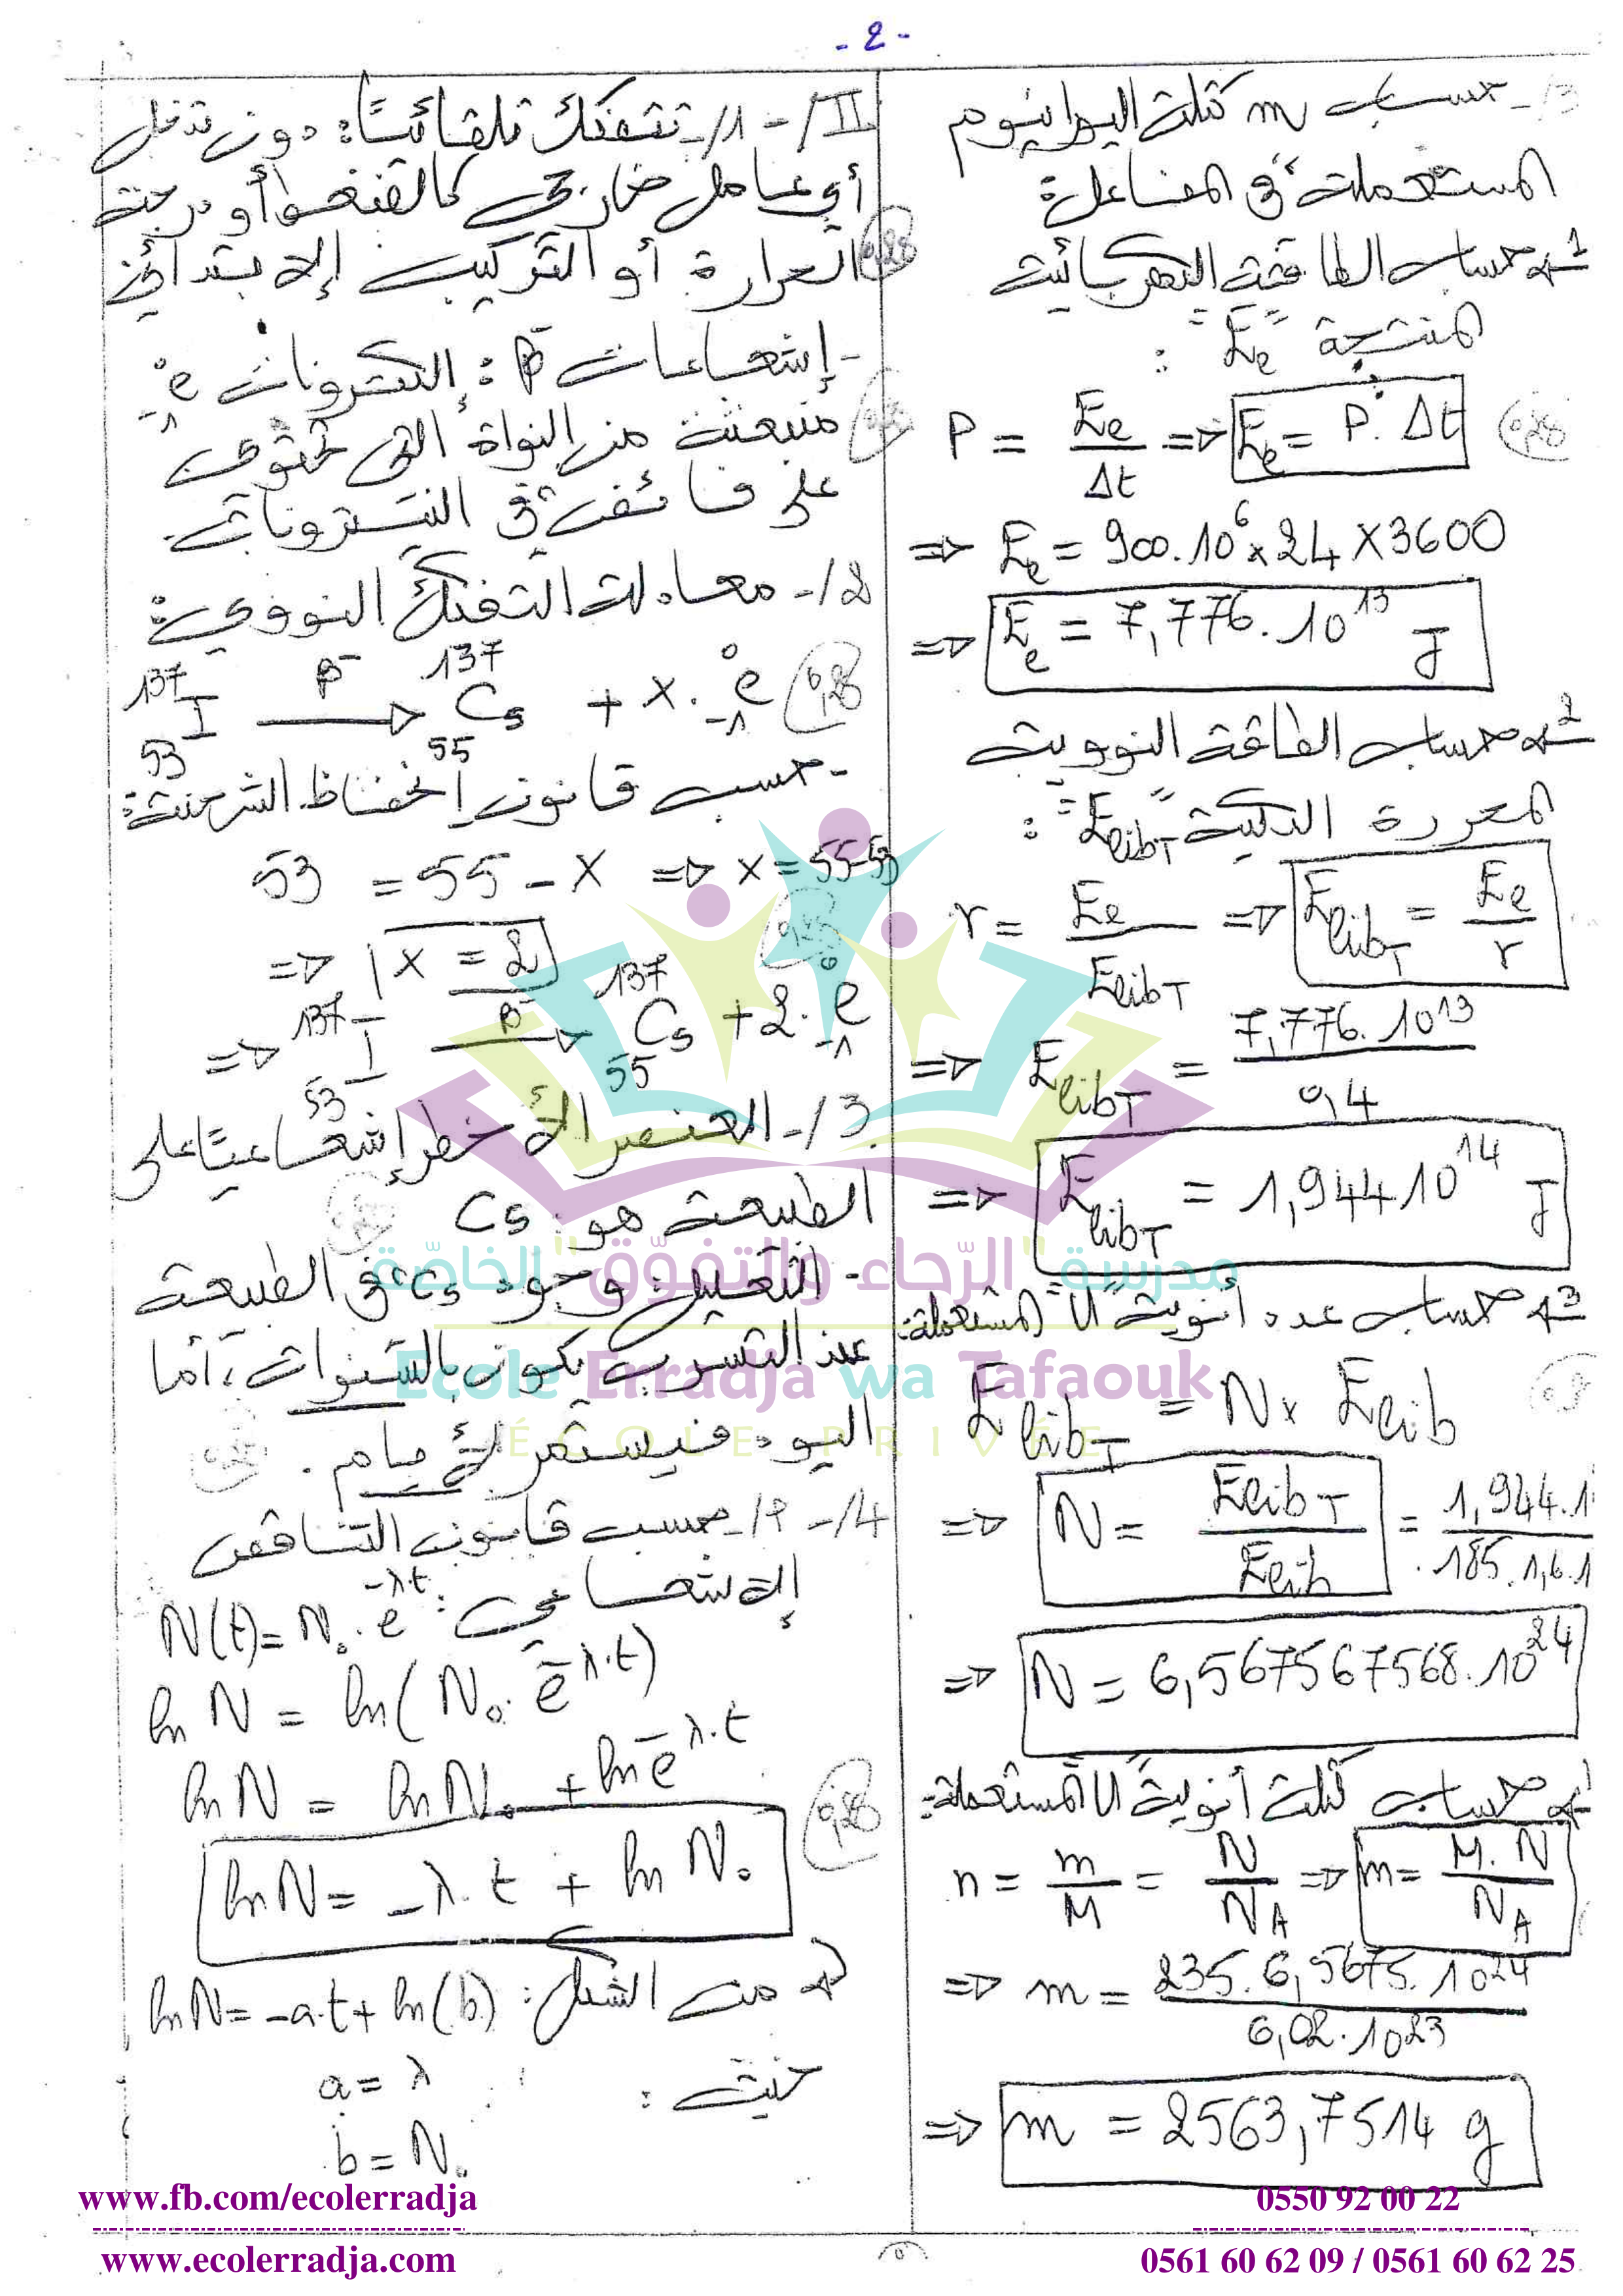 - 2 -
3/- حساب m كتلة اليورانيوم
المستعملة في المفاعل:
1 حساب الطاقة الكهربائية
المنتجة "Ee" :
P = Ee / Δt => Ee = P. Δt
0,25
=> Ee = 900.10^6 x 24 x 3600
=> Ee = 7,776.10^13 J
2 حساب الطاقة النووية
المحررة الكلية "ElibT" :
r = Ee / ElibT => ElibT = Ee / r
=> ElibT = 7,776.10^13 / 0,4
=> ElibT = 1,944.10^14 J
3 حساب عدد أنوية "U" المستعملة:
ElibT = N x Elib
=> N = ElibT / Elib = 1,944.1 / 185.1,6.1
=> N = 6,567567568.10^24
حساب كتلة أنوية U المستعملة:
n = m / M = N / NA => m = M. N / NA
=> m = 235. 6,5675.10^24 / 6,02.10^23
=> m = 2563,7514 g
II /- 1/- تتفكك تلقائيًا: دون تدخل
أي عامل خارجي كالضغط أو درجة
الحرارة أو التركيب الابتدائي
0,25
- إشعاعات β- : إلكترونات 0 -1 e
منبعثة من النواة التي تحتوي
على فائض في النيترونات.
2/- معادلة التفكك النووي:
137 53 I β- → 137 55 Cs + x. 0 -1 e
0,25
- حسب قانون إنحفاظ الشحنة:
53 = 55 - x => x = 55-53
=> x = 2
0,25
=> 137 53 I β- → 137 55 Cs + 2. 0 -1 e
3/- العنصر الأخطر إشعاعيًا على
الطبيعة هو: Cs
- التعليل: وجود Cs في الطبيعة
عند التسرب يكون بالسنوات، أما
اليود فيستمر لأيام.
4/- 1/- حسب قانون التناقص
الإشعاعي: N(t) = N₀. e^-λ.t
ln N = ln( N₀. e^-λ.t)
ln N = ln N₀ + ln e^-λ.t
0,25
ln N = -λ. t + ln N₀
من الشكل: ln N = -a.t + ln (b)
حيث :
a = λ
b = N₀
مدرسة "الرّجاء والتفوّق" الخاصّة
Ecole Erradja wa Tafaouk
ÉCOLE PRIVÉE
www.fb.com/ecolerradja
0550 92 00 22
www.ecolerradja.com
0561 60 62 09 / 0561 60 62 25